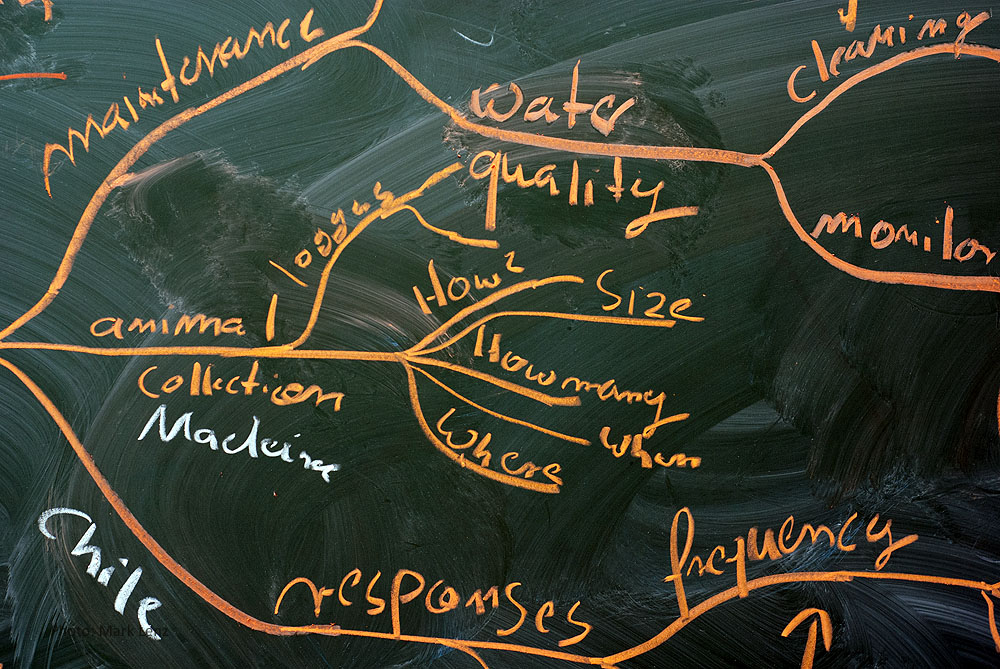 maintenance
cleaning
Water
quality
monitor
loggers
How?
Size
animal
collection
How many
when
where
Madeira
Chile
responses
frequency